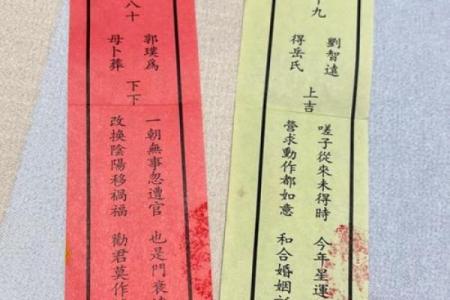 八十
郭璞為
母卜葬
下下
一朝無事忽遭官 也是門衰
改換陰陽移禍福 勸君莫作
十九
劉智遠
得岳氏
上吉
嗟子從來未得時 今年星運
營求動作都如意 和合婚姻